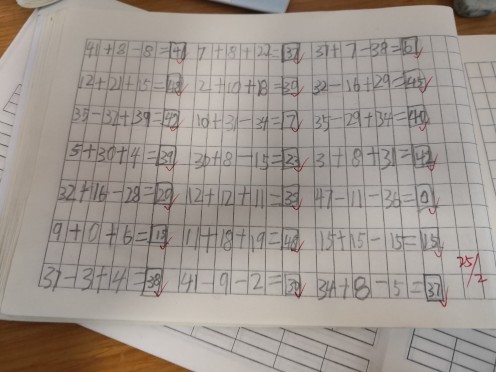 41+8-8=41 7+8+22=37 37+7-38=6
12+21+15=48 2+10+18=30 32-16+29=45
35-32+39=42 10+31-34=7 35-29+34=40
5+30+4=39 30+8-15=23 3+8+31=42
32+16-28=20 12+12+11=35 47-11-36=0
9+0+6=15 11+18+19=48 15+15-15=15
37-3+4=38 41-9-2=30 34+8-5=37
25/2